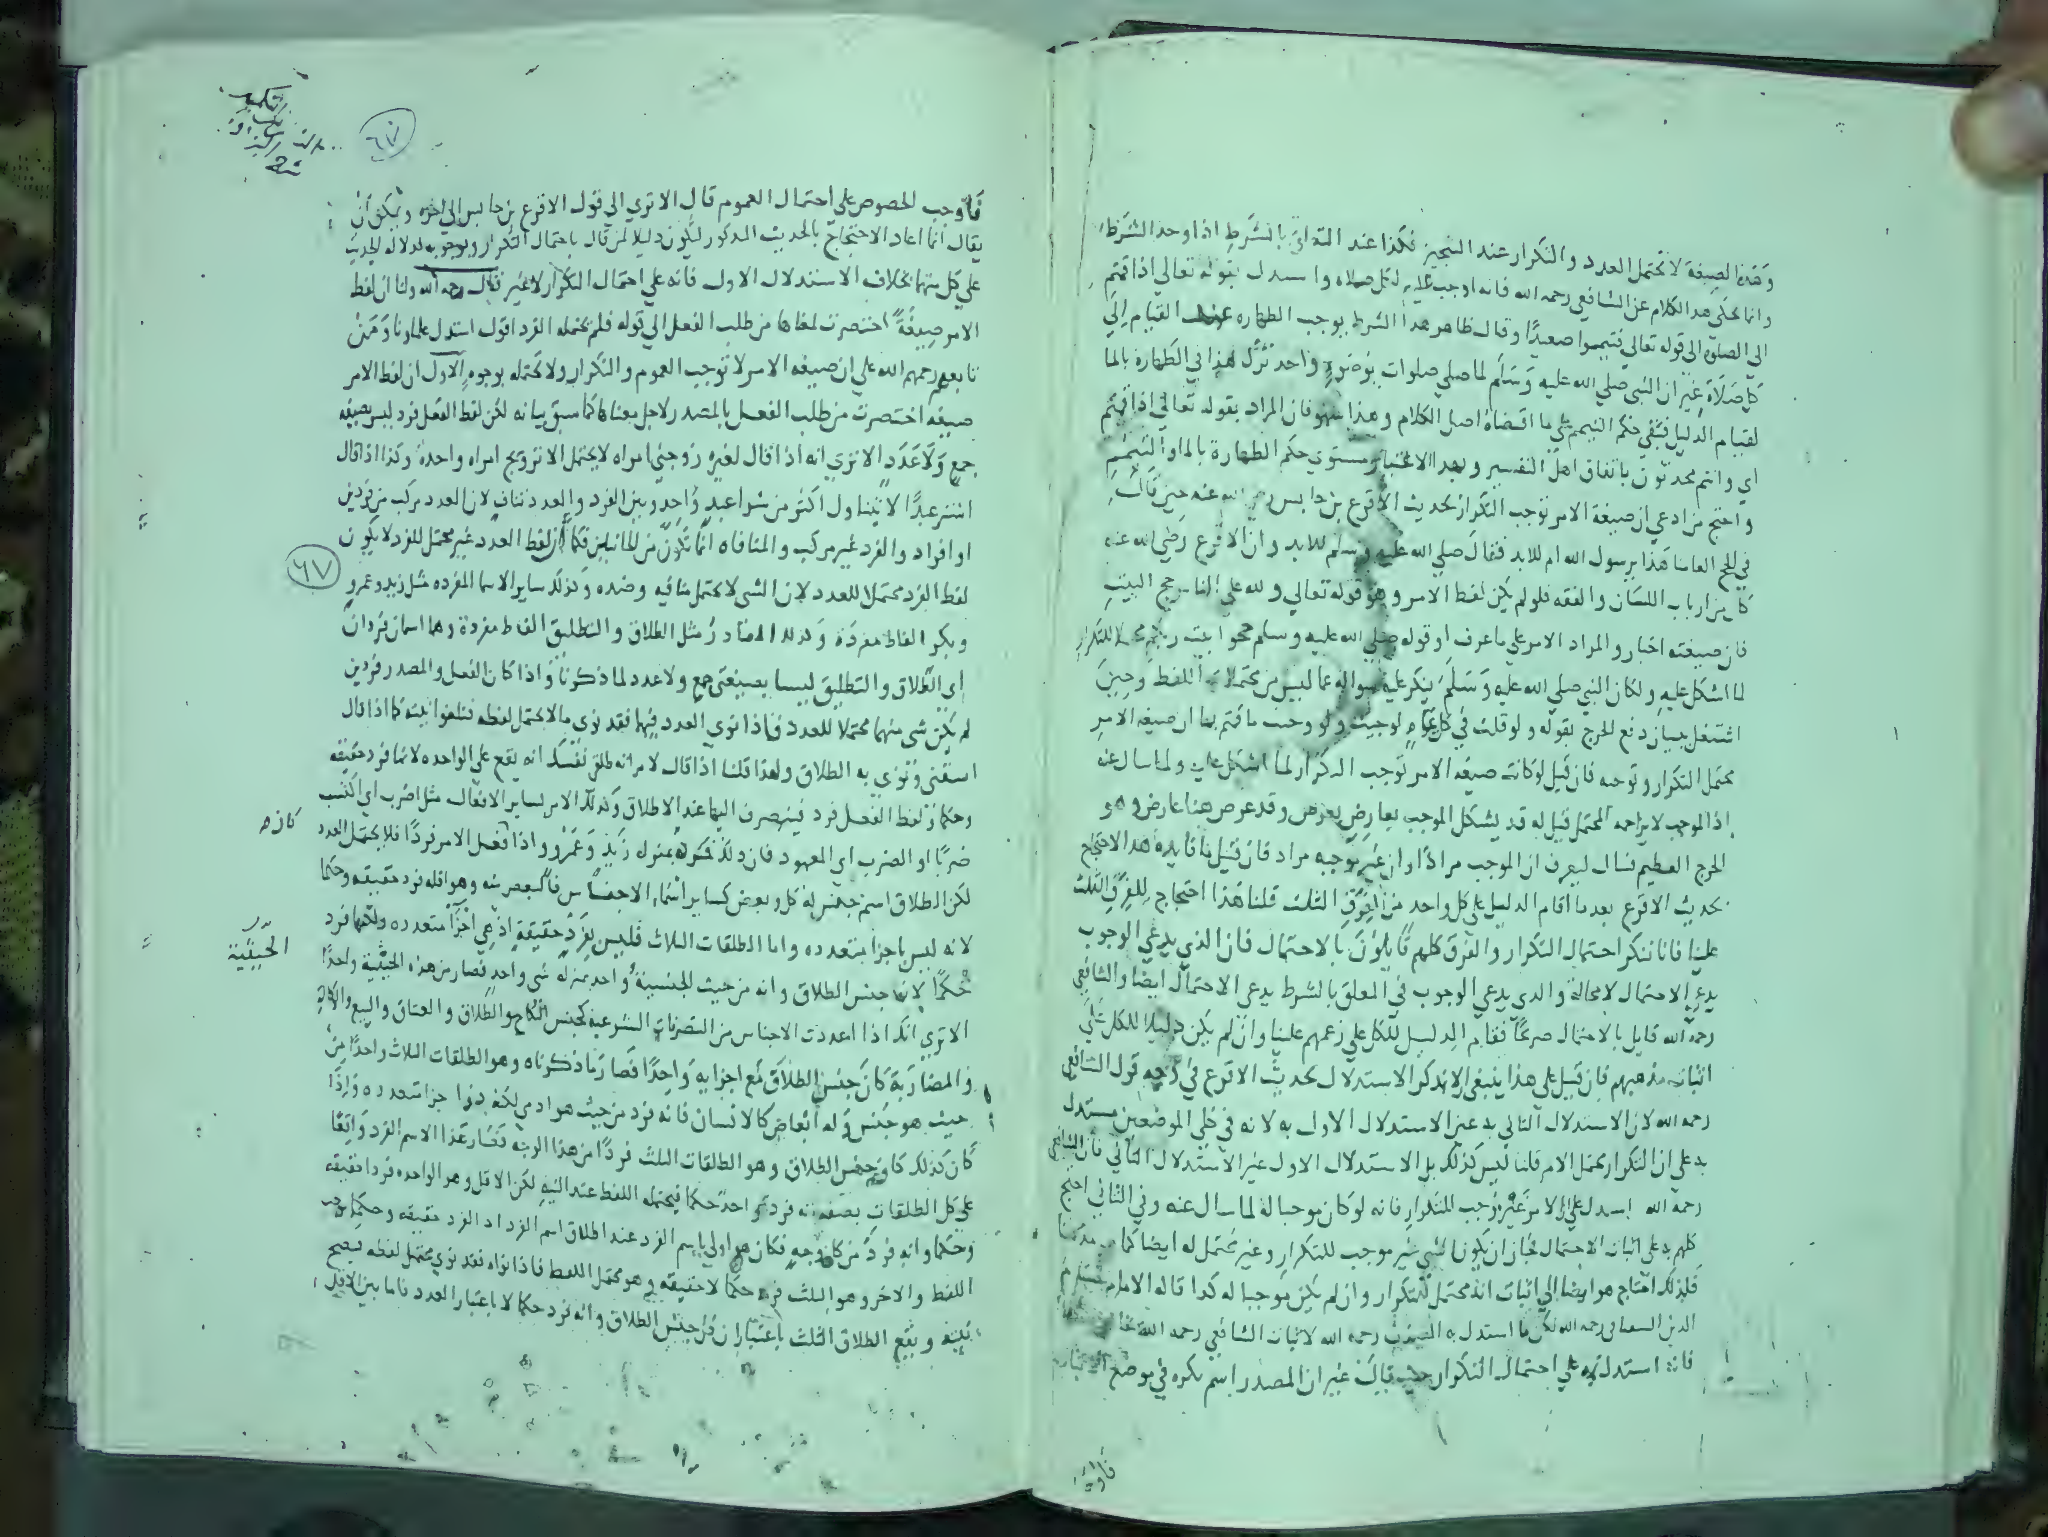 وهذه الصيغة لا تحتمل العدد والتكرار عند التنجيز فكذا عند التعليق بالشرط اذا وجد الشرط
وانما يحكى هذا الكلام عن الشافعي رحمه الله فانه اوجب لكل صلاة واستدل بقوله تعالى اذا قمتم
الى الصلوة الى قوله تعالى فتيمموا صعيدا وقال ظاهر هذا الشرط يوجب الطهارة عند القيام الى
كل صلاة غير ان النبي صلى الله عليه وسلم لما صلى صلوات بوضوء واحد ترك هذا في الطهارة بالما
لقيام الدليل فبقي حكم التيمم على ما اقتضاه اصل الكلام وهذا سهو فان المراد بقوله تعالى اذا قمتم
اي وانتم محدثون باتفاق اهل التفسير وبهذا الاعتبار مستوي حكم الطهارة بالما والتيمم
واحتج من ادعى ان صيغة الامر توجب التكرار بحديث الاقرع بن حابس رضي الله عنه حين قال
في الحج العامنا هذا يرسول الله ام للابد فقال صلى الله عليه وسلم للابد وان الاقرع رضي الله عنه
كان من ارباب اللسان والفقه فلو لم يكن لفظ الامر وهو قوله تعالى ولله على الناس حج البيت
فان صيغته اخبار والمراد الامر على ما عرف او قوله صلى الله عليه وسلم حجوا بيت ربكم محتملا للتكرار
لما اشكل عليه ولكان النبي صلى الله عليه وسلم ينكر عليه سواله عما ليس من محتملات اللفظ وحين
اشتغل ببيان دفع الحرج بقوله ولو قلت في كل عام لوجبت ولو وجبت ما قمتم بها ان صيغة الامر
يحتمل التكرار وتوجبه فان قيل لو كانت صيغة الامر توجب التكرار لما اشكل عليه ولما سال عنه
اذ الموجب لا يزاحمه المحتمل قيل له قد يشكل الموجب بعارض يعرض وقد عرض هنا عارض وهو
الحرج العظيم فسال ليعرف ان الموجب مرادا وان غير موجبه مراد فان قيل ما فايدة هذا الاحتجاج
بحديث الاقرع بعد ما اقام الدليل على كل واحد من الفرق الثلث قلنا هذا احتجاج للفرق الثلث
علينا فانا ننكر احتمال التكرار والفرق كلهم قايلون بالاحتمال فان الذي يدعي الوجوب
يدعي الاحتمال لا محالة والذي يدعي الوجوب في المعلق بالشرط يدعي الاحتمال ايضا والشافعي
رحمه الله قايل بالاحتمال صريحا فقام الدليل للكل على زعمهم علينا وان لم يكن دليلا للكل على
اثبات مذهبهم فان قيل على هذا ينبغي ان لا يذكر الاستدلال بحديث الاقرع في وجه قول الشافعي
رحمه الله لان الاستدلال الثاني به عين الاستدلال الاول به لانه في كلي الموضعين يستدل
به على ان التكرار يحتمل الامر قلنا ليس كذلك بل الاستدلال الاول غير الاستدلال الثاني فان الشافعي
رحمه الله استدل على ان الامر غير موجب للتكرار فانه لو كان موجبا له لما سال عنه وفي الثاني احتج
كلهم به على اثبات الاحتمال فجاز ان يكون الشي غير موجب للتكرار وغير محتمل له ايضا كما هو مذهبنا
فلذلك احتاج هو ايضا الى اثبات انه محتمل للتكرار وان لم يكن موجبا له كذا قاله الامام
الدين السغناقي رحمه الله لكن ما استدل به المصنف رحمه الله لاثبات الشافعي رحمه الله
فانه استدل به على احتمال التكرار حيث قال غير ان المصدر اسم نكرة في موضع الاثبات
فاوجب
٦٧
فاوجب الخصوص على احتمال العموم قال الا ترى الى قول الاقرع بن حابس الى اخره ويمكن ان
يقال انما اعاد الاحتجاج بالحديث المذكور ليكون دليلا لمن قال باحتمال التكرار وبوجوبه لدلالة الحديث
على كل منهما بخلاف الاستدلال الاول فانه على احتمال التكرار لا غير قال رحمه الله ولنا ان لفظ
الامر صيغة اختصرت لمعناها من طلب الفعل الى قوله فلم يحتمله الفرد اقول استدل علماونا ومن
تابعهم رحمهم الله على ان صيغة الامر لا توجب العموم والتكرار ولا تحتمله بوجوه الاول ان لفظ الامر
صيغة اختصرت من طلب الفعل بالمصدر لاجل معناها كما سبق بيانه لكن لفظ الفعل فرد ليس بصيغة
جمع ولا عدد الا ترى انه اذا قال لغيره زوجني امراة لا يحتمل الا تزويج امراة واحدة وكذا اذا قال
اشتر عبدا لا يتناول اكثر من شرا عبد واحد وبين الفرد والعدد تناف لان العدد مركب من فردين
او افراد والفرد غير مركب والمنافاة انما تكون من الجانبين فكما ان لفظ العدد غير محتمل للفرد لا يكون
٦٧
لفظ الفرد محتملا للعدد لان الشي لا يحتمل منافيه وضده وكذلك ساير الاسما المفردة مثل زيد وعمرو
وبكر الفاظ مفردة وكذلك المصادر مثل الطلاق والتطليق الفاظ مفردة وهما اسمان فردان
اي الطلاق والتطليق ليسا بصيغتي جمع ولا عدد لما ذكرنا واذا كان الفعل والمصدر فردين
لم يكن شي منهما محتملا للعدد فاذا نوى العدد فيهما فقد نوى ما لا يحتمل لفظه فتلغوا نيته كما اذا قال
اسقني ونوى به الطلاق ولهذا قلنا اذا قال لامراته طلقي نفسك انه يقع على الواحدة لانها فرد حقيقة
وحكما ولفظ الفعل فرد فينصرف اليها عند الاطلاق وكذلك الامر لساير الافعال مثل اضرب اي اكتسب
كانه
ضربا او الضرب اي المعهود فان ذلك كقوله بمنزلة زيد وعمرو واذا كان فعل الامر فردا فلا يحتمل العدد
لكن الطلاق اسم جنس له كل وبعض كساير اسماء الاجناس فالبعض منه وهو اقله فرد حقيقة وحكما
الحيثية
لانه ليس باجزا متعددة واما الطلقات الثلاث فليس بفرد حقيقة اذ هي اجزا متعددة ولكنها فرد
حكما لانها جنس الطلاق وانه من حيث الجنسية واحد بمنزلة شي واحد فصار من هذه الحيثية واحدا
الا ترى انك اذا عددت الاجناس من التصرفات الشرعية كجنس النكاح والطلاق والعتاق والبيع والاجارة
والمضاربة كان جنس الطلاق مع اجزايه واحدا فصار ما ذكرناه وهو الطلقات الثلاث واحدا من
حيث هو جنس وله ابعاض كالانسان فانه فرد من حيث هو ادمي لكنه ذوا اجزا متعددة واذا
كان كذلك كان جنس الطلاق وهو الطلقات الثلث فردا من هذا الوجه فصار هذا الاسم الفرد واقعا
على كل الطلقات بصفة انه فرد واحد حكما فيحتمله اللفظ عند النية لكن الاقل وهو الواحدة فردا حقيقة
وحكما وانه فرد من كل وجه فكان هو اولى باسم الفرد عند اطلاق اسم الفرد اذ الفرد حقيقة وحكما موجب
اللفظ والاخر وهو الثلث فرد حكما لا حقيقة وهو محتمل اللفظ فاذا نواه فقد نوى محتمل لفظه فيصح
نيته ويقع الطلاق الثلث باعتبار ان كل جنس الطلاق وانه فرد حكما لا باعتبار العدد فاما بين الاقل